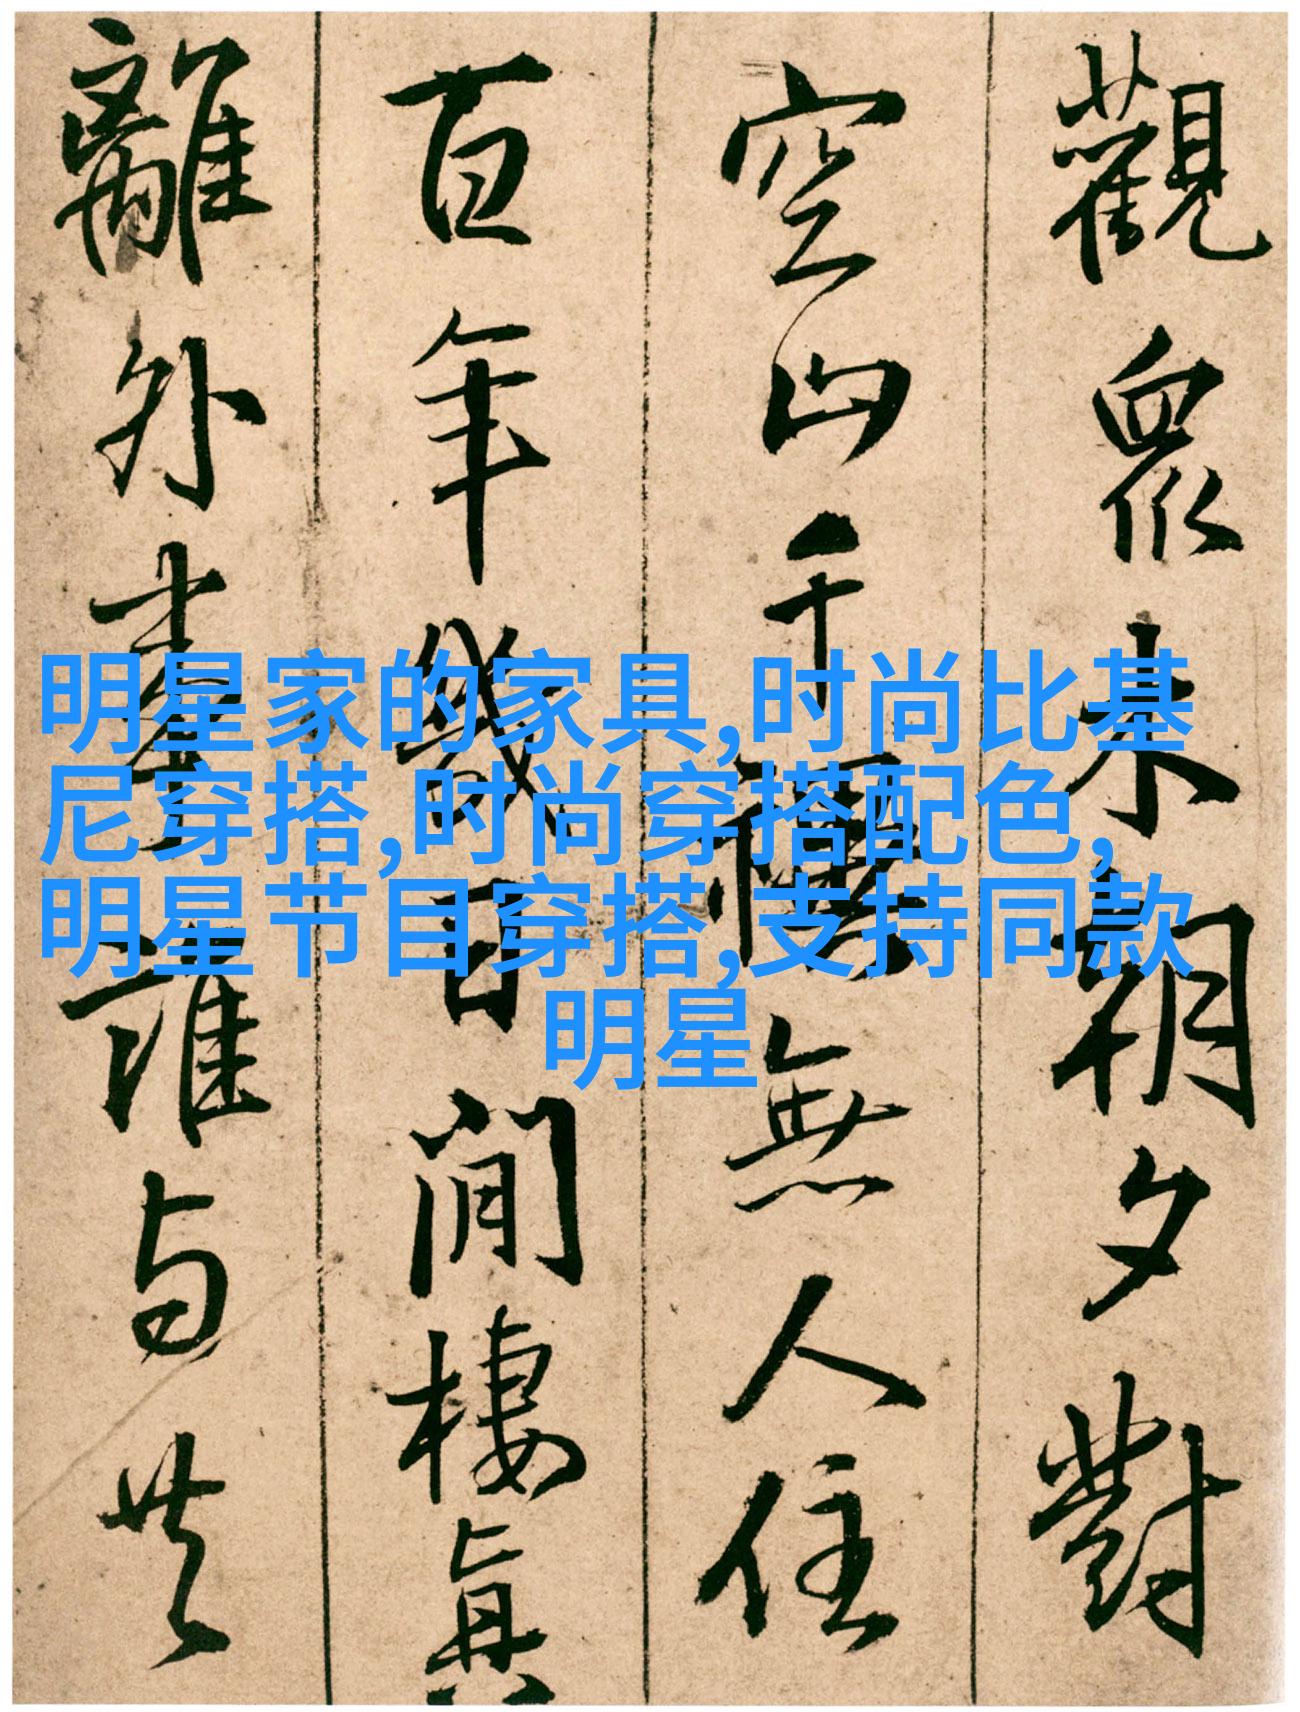 觀眾来朝夕對
空山千禩無人住
百年幾日閒棲真
離外臺誰与共
明星家的家具,时尚比基
尼穿搭,时尚穿搭配色,
明星节目穿搭,支持同款
明星